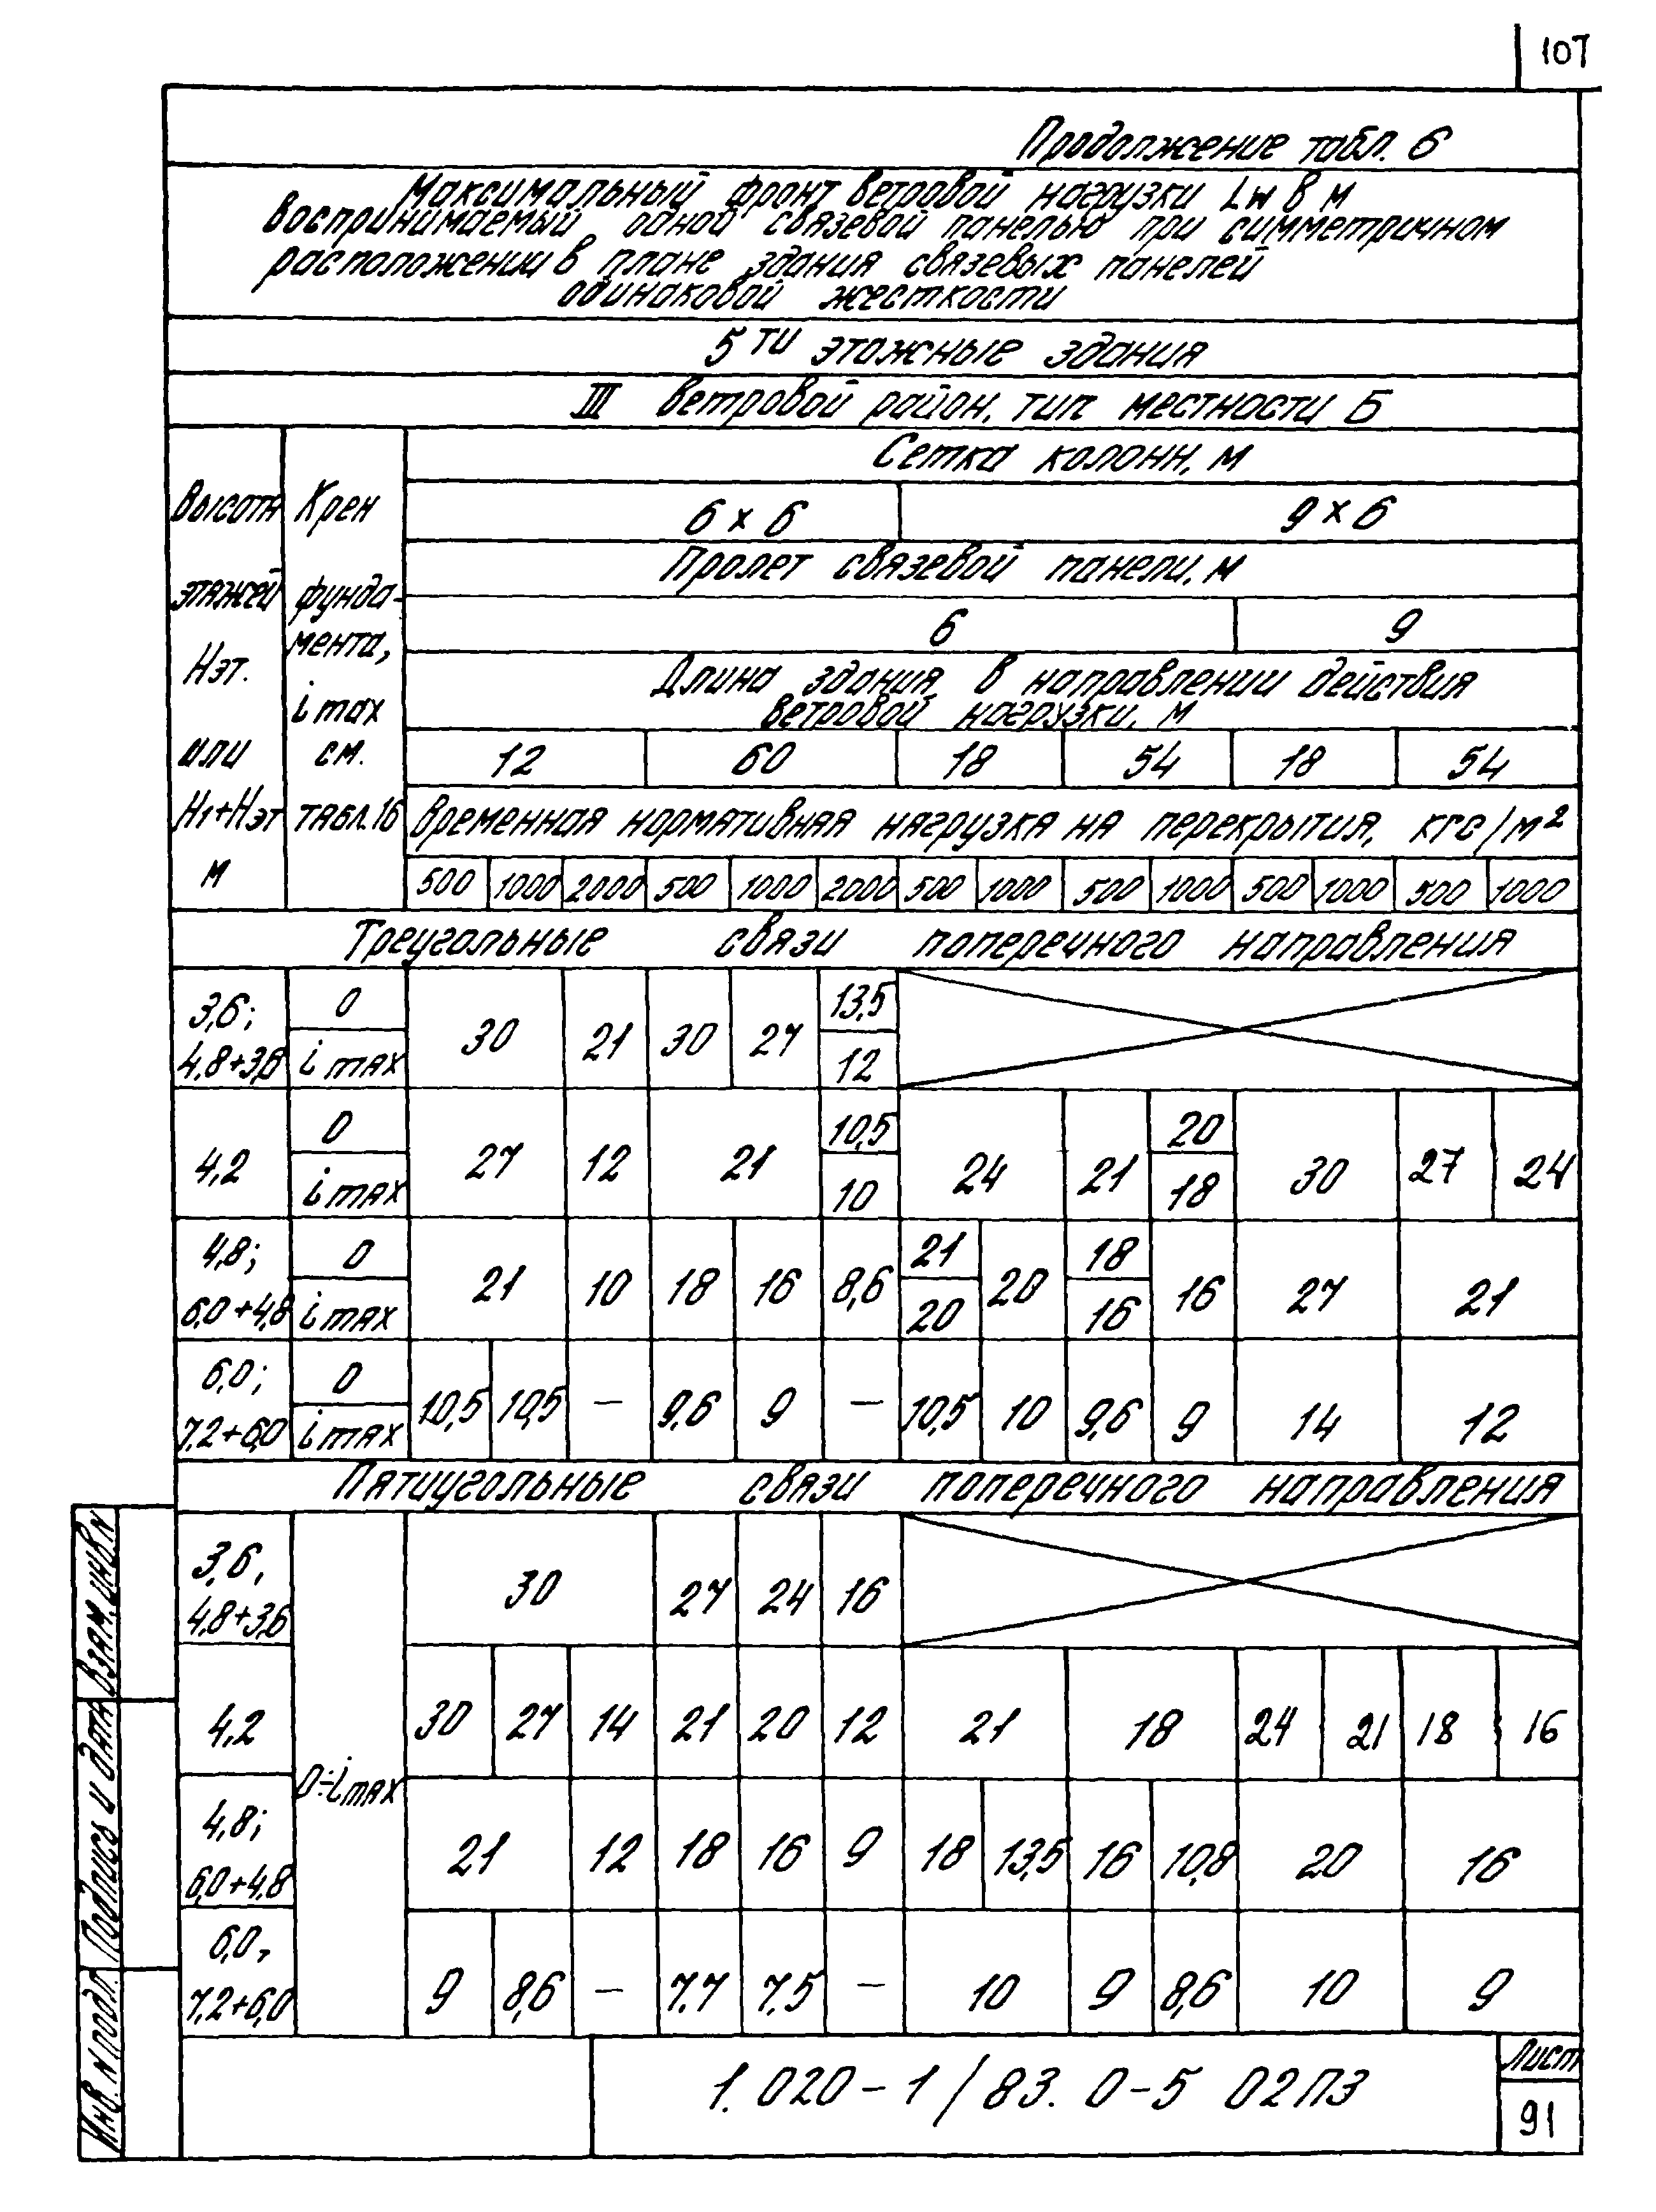 107
Продолжение табл. 6
Максимальный фронт ветровой нагрузки Lw в м
воспринимаемый одной связевой панелью при симметричном
расположении в плане здания связевых панелей
одинаковой жесткости
5ти этажные здания
III ветровой район, тип местности Б
Сетка колонн, м
Высота Крен
6 x 6 9 x 6
Пролет связевой панели, м
этажей фунда-
6 9
мента,
Нэт.
Длина здания в направлении действия
ветровой нагрузки, м
i max
или см.
12 60 18 54 18 54
Н1+Нэт табл.16 Временная нормативная нагрузка на перекрытия, кгс/м2
м
500 1000 2000 500 1000 2000 500 1000 500 1000 500 1000 500 1000
Треугольные связи поперечного направления
3,6; 0 13,5
30 21 30 27
4,8+3,6 i max 12
0 10,5 20
4,2 27 12 21 24 21 30 27 24
i max 10 18
4,8; 0 21 18
21 10 18 16 8,6 20 16 27 21
6,0+4,8 i max 20 16
6,0; 0
10,5 10,5 – 9,6 9 – 10,5 10 9,6 9 14 12
7,2+6,0 i max
Пятиугольные связи поперечного направления
3,6,
30 27 24 16
4,8+3,6
4,2 30 27 14 21 20 12 21 18 24 21 18 16
0÷i max
4,8;
21 12 18 16 9 18 13,5 16 10,8 20 16
6,0+4,8
6,0,
9 8,6 – 7,7 7,5 – 10 9 8,6 10 9
7,2+6,0
Взам.инв.N
Подпись и дата
Инв. N подл.
1.020-1/83. 0-5 02ПЗ
Лист
91